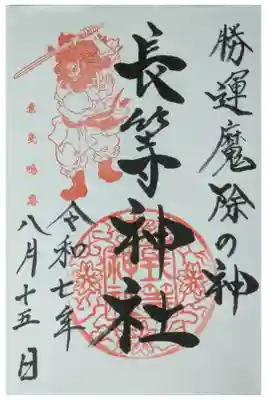 勝運魔除の神
長等神社
令和七年
八月十五日